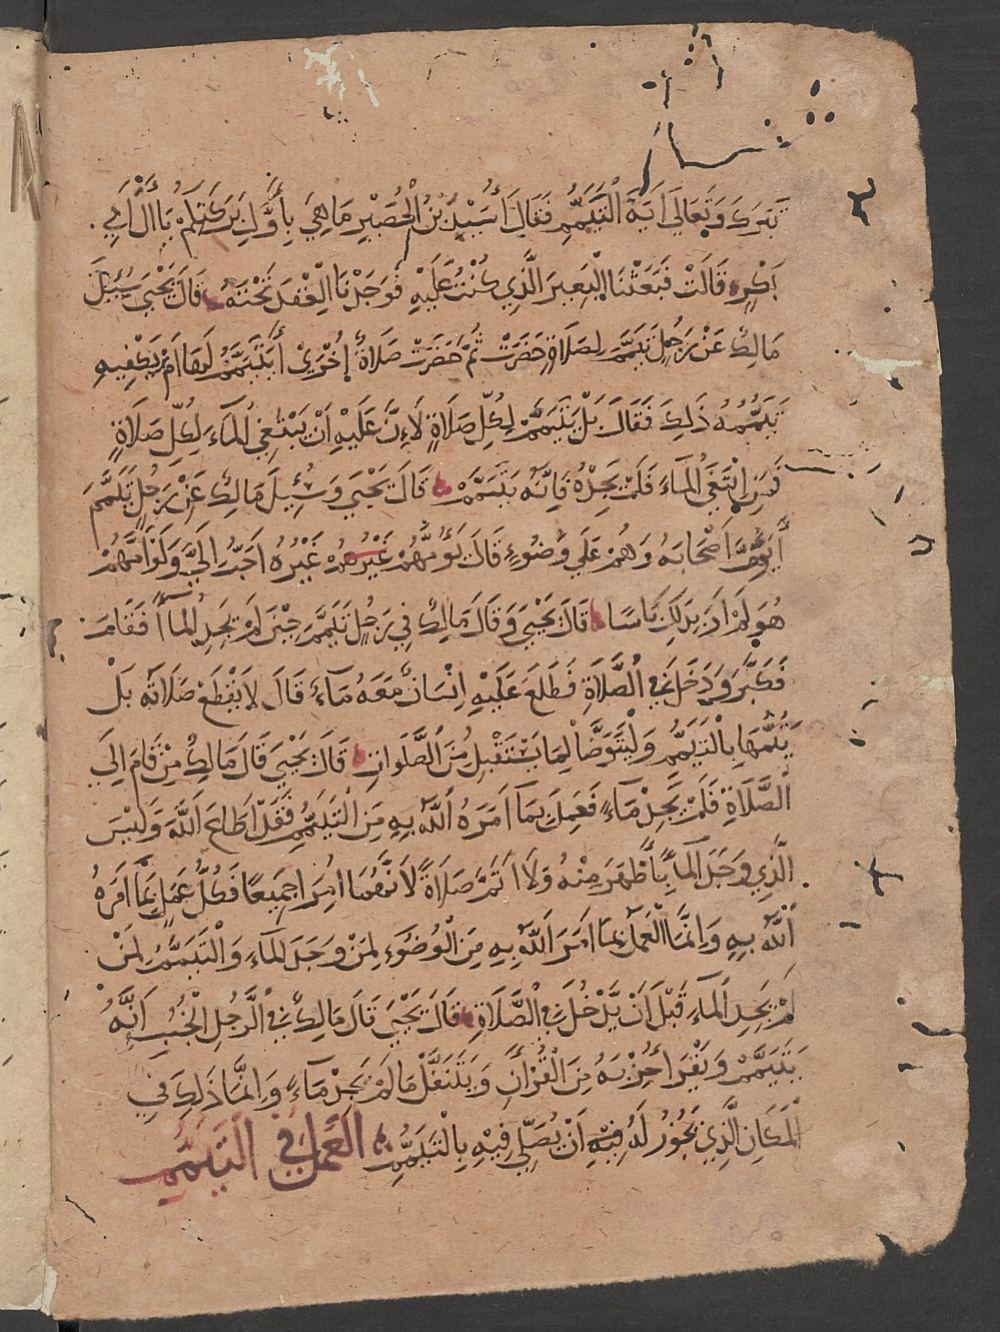 تَبَرَكَ وَتَعَالَى اَيَةَ الْتَيَمُّمِ فَقَالَ أُسَيْدُ بْنُ الْحُضَيْرِ مَا هِيَ بِأَوَّلِ بَرَكَتِكُمْ يَا اٰلَ أَبِي
بَكْرٍ قَالَتْ فَبَعَثْنَا الْبَعِيرَ الَّذِي كُنْتُ عَلَيْهِ فَوَجَدْنَا الْعِقْدَ تَحْتَهُ قَالَ يَحْيَى سُئِلَ
مَالِكٌ عَنْ رَجُلٍ تَيَمَّمَ لِصَلَاةٍ حَضَرَتْ ثُمَّ حَضَرَتْ صَلَاةٌ أُخْرَى أَيَتَيَمَّمُ لَهَا اَمْ يَكْفِيهِ
تَيَمُّمُهُ ذَلِكَ فَقَالَ بَلْ يَتَيَمَّمُ لِكُلِّ صَلَاةٍ لِأَنَّ عَلَيْهِ اَنْ يَبْتَغِيَ الْمَاءَ لِكُلِّ صَلَاةٍ
فَمَنِ ابْتَغَى الْمَاءَ فَلَمْ يَجِدْهُ فَاِنَّهُ يَتَيَمَّمُ قَالَ يَحْيَى وَسُئِلَ مَالِكٌ عَنْ رَجُلٍ تَيَمَّمَ
أَيَؤُمُّ اَصْحَابَهُ وَهُمْ عَلَى وُضُوءٍ قَالَ يَؤُمُّهُمْ غَيْرُهُ اَحَبُّ اِلَيَّ وَلَوْ اَمَّهُمْ
هُوَ لَمْ اَرَ بِذَلِكَ بَاسًا قَالَ يَحْيَى وَقَالَ مَالِكٌ فِي رَجُلٍ تَيَمَّمَ حِيْنَ لَمْ يَجِدِ الْمَاءَ فَقَامَ
فَكَبَّرَ وَدَخَلَ فِي الْصَّلَاةِ فَطَلَعَ عَلَيْهِ اِنْسَانٌ مَعَهُ مَاءٌ قَالَ لَا يَقْطَعُ صَلَاتَهُ بَلْ
يُتِمُّهَا بِالْتَيَمُّمِ وَلْيَتَوَضَّأْ لِمَا يَسْتَقْبِلُ مِنَ الْصَّلَوَاتِ قَالَ يَحْيَى قَالَ مَالِكٌ مَنْ قَامَ اِلَى
الْصَّلَاةِ فَلَمْ يَجِدْ مَاءً فَعَمِلَ بِمَا اَمَرَهُ اللّٰهُ بِهِ مِنَ الْتَيَمُّمِ فَقَدْ اَطَاعَ اللّٰهَ وَلَيْسَ
الَّذِي وَجَدَ الْمَاءَ بِأَطْهَرَ مِنْهُ وَلَا اَتَمَّ صَلَاةً لِاَنَّهُمَا اُمِرَا جَمِيعًا فَكُلٌّ عَمِلَ بِمَا اَمَرَهُ
اللّٰهُ بِهِ وَاِنَّمَا الْعَمَلُ بِمَا اَمَرَ اللّٰهُ بِهِ مِنَ الْوُضُوءِ لِمَنْ وَجَدَ الْمَاءَ وَالْتَيَمُّمُ لِمَنْ
لَمْ يَجِدِ الْمَاءَ قَبْلَ اَنْ يَدْخُلَ فِي الْصَّلَاةِ قَالَ يَحْيَى قَالَ مَالِكٌ فِي الْرَّجُلِ الْجُنُبِ اَنَّهُ
يَتَيَمَّمُ وَيَقْرَأُ حِزْبَهُ مِنَ الْقُرْاٰنِ وَيَتَنَفَّلُ مَا لَمْ يَجِدْ مَاءً وَاِنَّمَا ذَلِكَ فِي
الْمَكَانِ الَّذِي يَجُوزُ لَهُ فِيْهِ اَنْ يُصَلِّيَ فِيْهِ بِالْتَيَمُّمِ الْعَمَلُ فِي الْتَيَمُّمِ